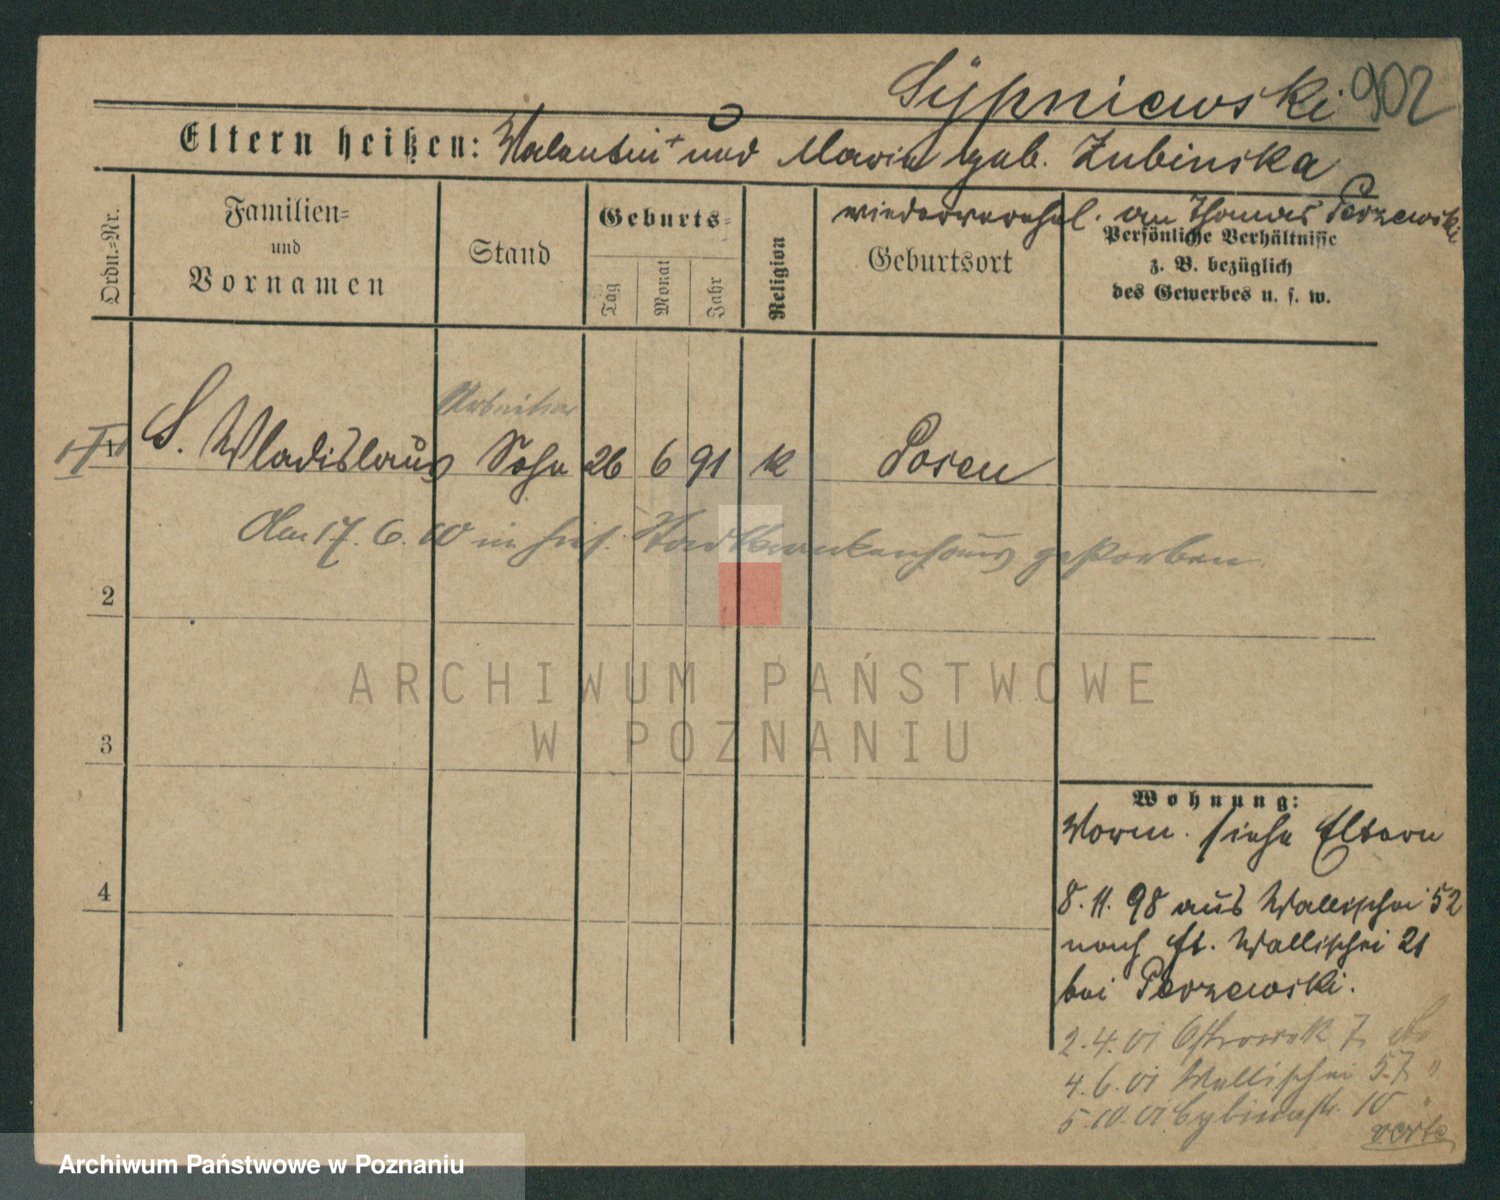 Sypniewski 902
Eltern heißen: Valentin + und Maria geb. Zubinska
wiederverehel. an Thomas Perzewski
Ordn.-Nr.
Familien-
und
Vornamen
Stand
Geburts-
Tag
Monat
Jahr
Religion
Geburtsort
Persönliche Verhältnisse
z. B. bezüglich
des Gewerbes u. s. w.
Arbeiter
S. Wladislaus Sohn 26 6 91 k Posen
Am 17. 6. 10 in hies. Stadtkrankenhaus gestorben
2
3
4
ARCHIWUM PAŃSTWOWE
W POZNANIU
Wohnung:
Vorm. siehe Eltern
8. 11. 98 aus Wallischei 52
nach Wallischei 21
bei Perzewski.
2. 4. 01 Ostrowek 7
4. 6. 01 Wallischei 57 "
5. 10. 01 Cybinastr. 10 "
verte
Archiwum Państwowe w Poznaniu